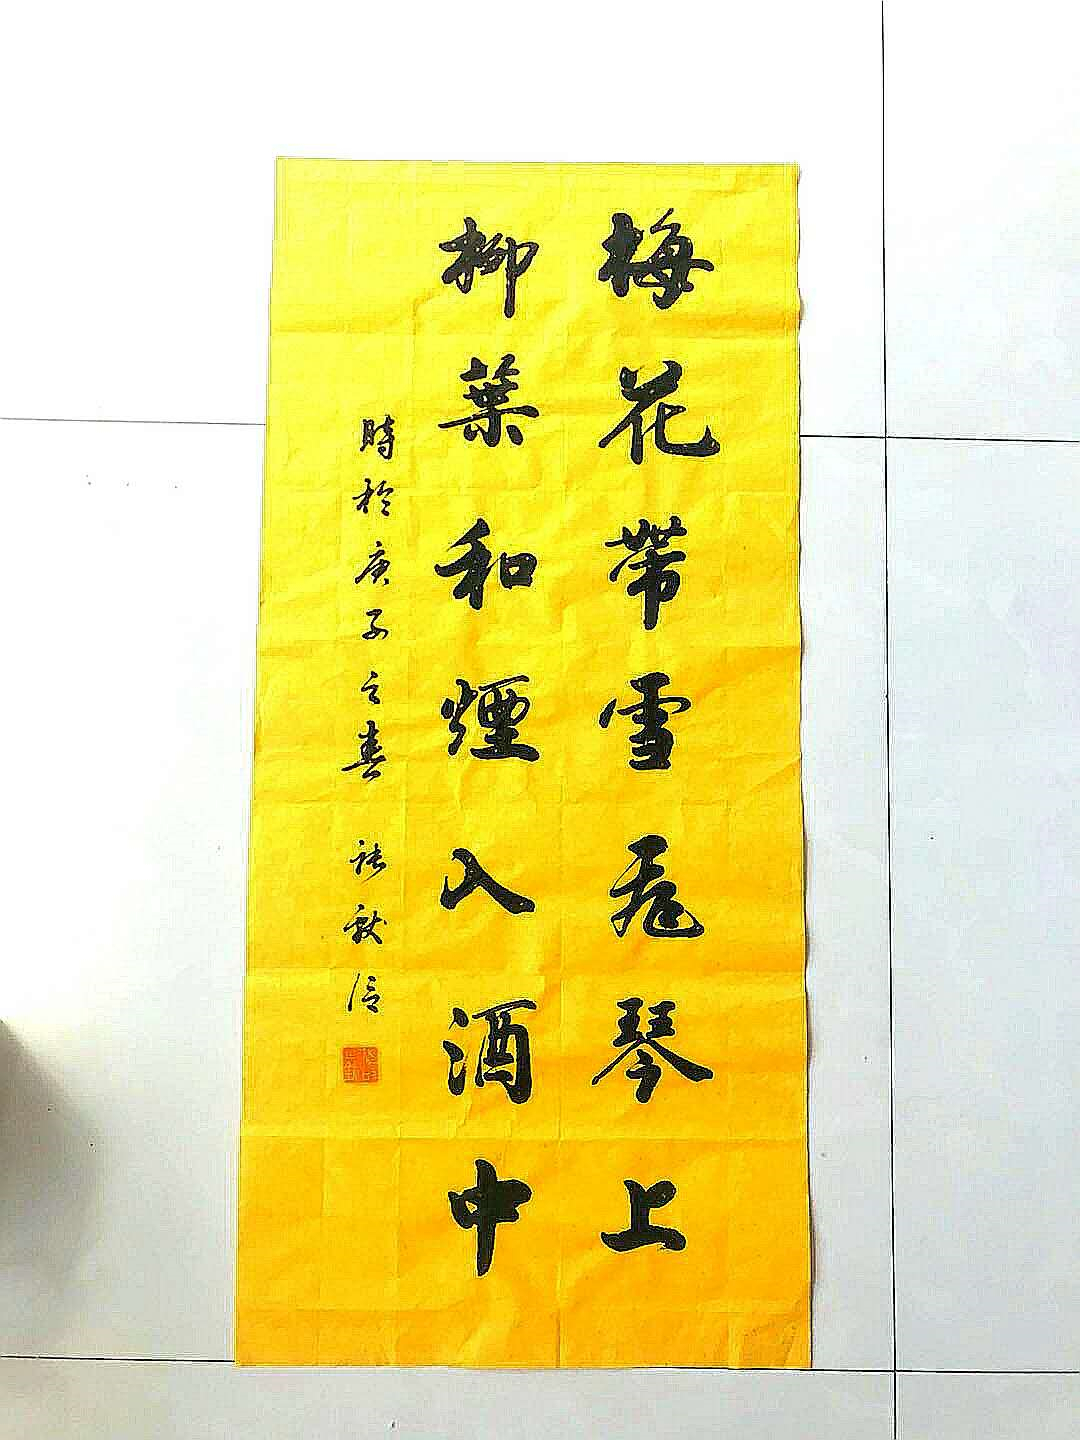 梅花帶雪飛琴上
柳葉和煙入酒中
時於庚子之春